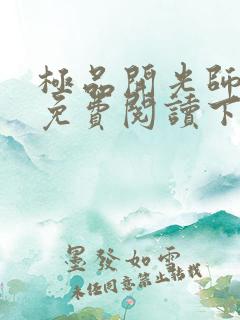 極品開光師
免費閱讀下
墨發如雲
未經同意禁止轉載